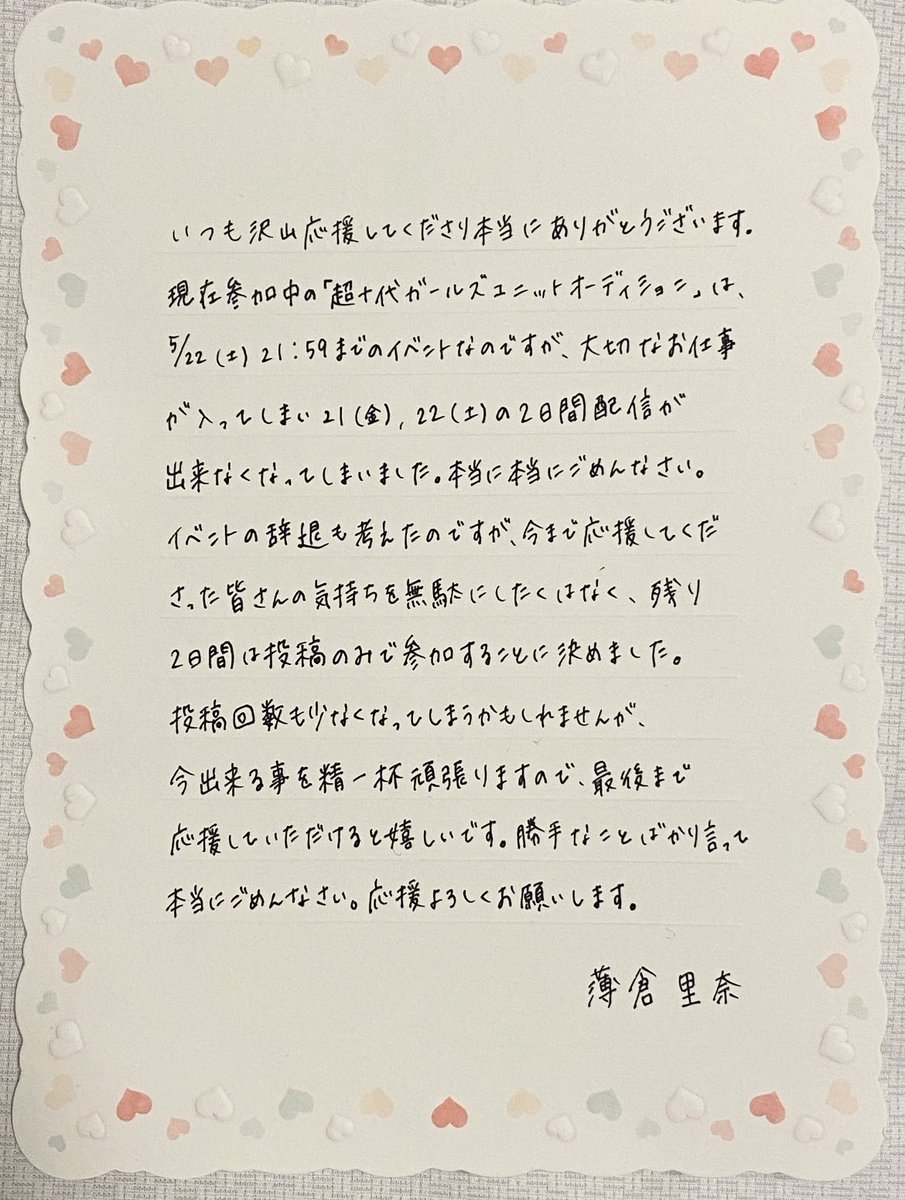 いつも沢山応援してくださり本当にありがとうございます。
現在参加中の「超十代ガールズユニットオーディション」は、
5/22(土)21:59までのイベントなのですが、大切なお仕事
が入ってしまい21(金),22(土)の2日間配信が
出来なくなってしまいました。本当に本当にごめんなさい。
イベントの辞退も考えたのですが、今まで応援してくだ
さった皆さんの気持ちを無駄にしたくはなく、残り
2日間は投稿のみで参加することに決めました。
投稿回数も少なくなってしまうかもしれませんが、
今出来る事を精一杯頑張りますので、最後まで
応援していただけると嬉しいです。勝手なことばかり言って
本当にごめんなさい。応援よろしくお願いします。
薄倉里奈